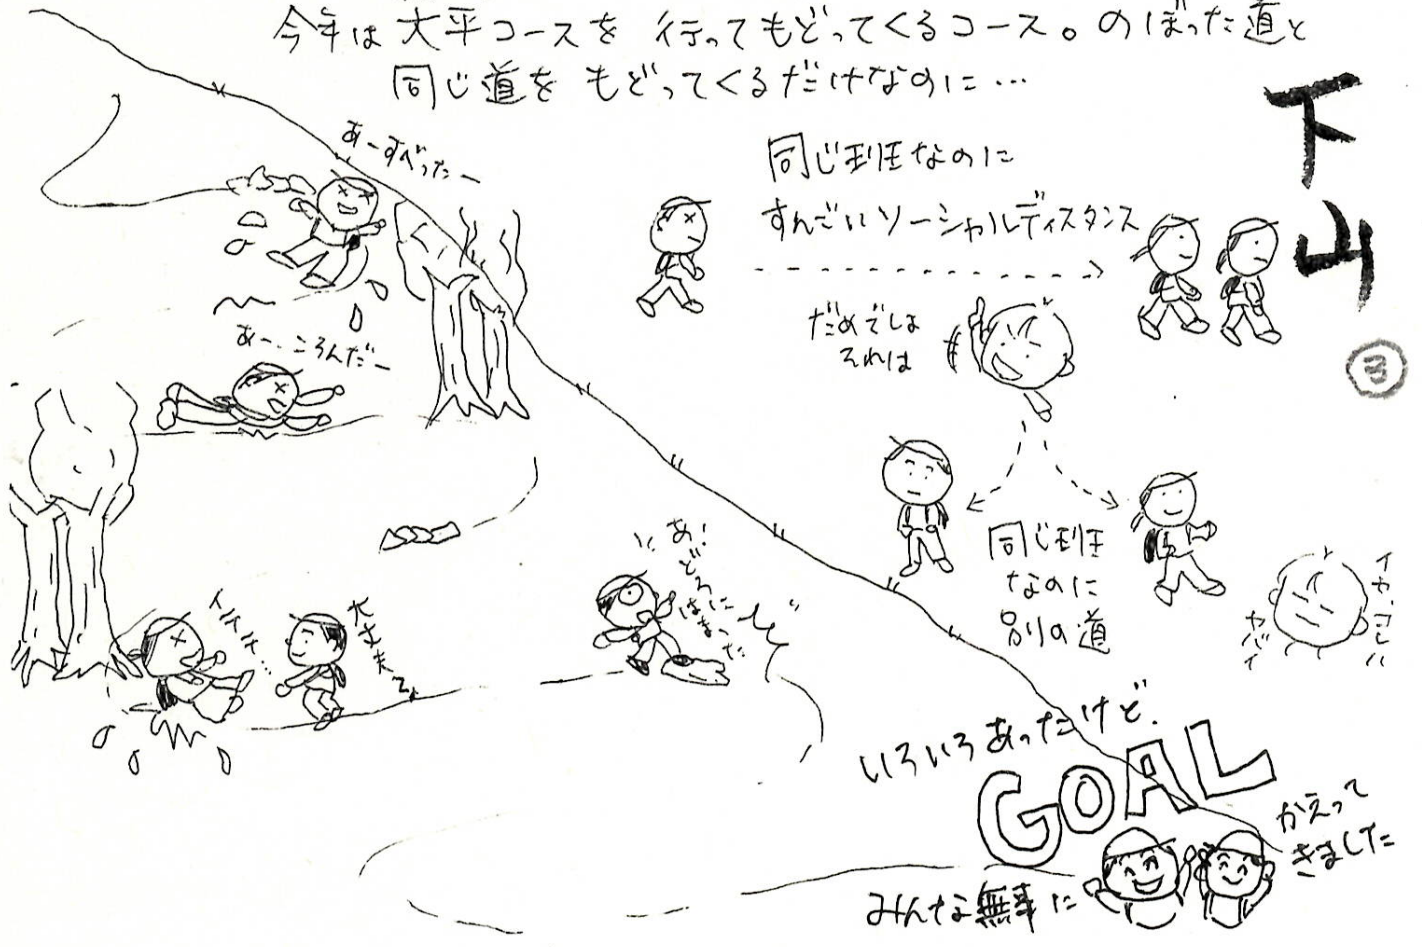 今年は大平コースを行ってもどってくるコース。のぼった道と
同じ道をもどってくるだけなのに…
下山
③
あーすべったー
同じ班なのに
すんごいソーシャルディスタンス
だめでしょ
それは
あー、ころんだー
同じ班
なのに
別の道
イカン、コレ!!
ヤバイ
イテテ…
大丈夫?
あ!
どろに
はまった
いろいろあったけど、
GOAL
みんな無事に
かえって
きました